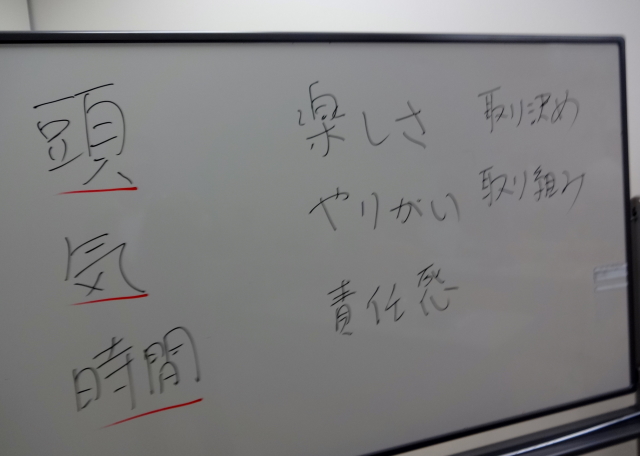 頭
気
時間
楽しさ
やりがい
責任感
取り決め
取り組み